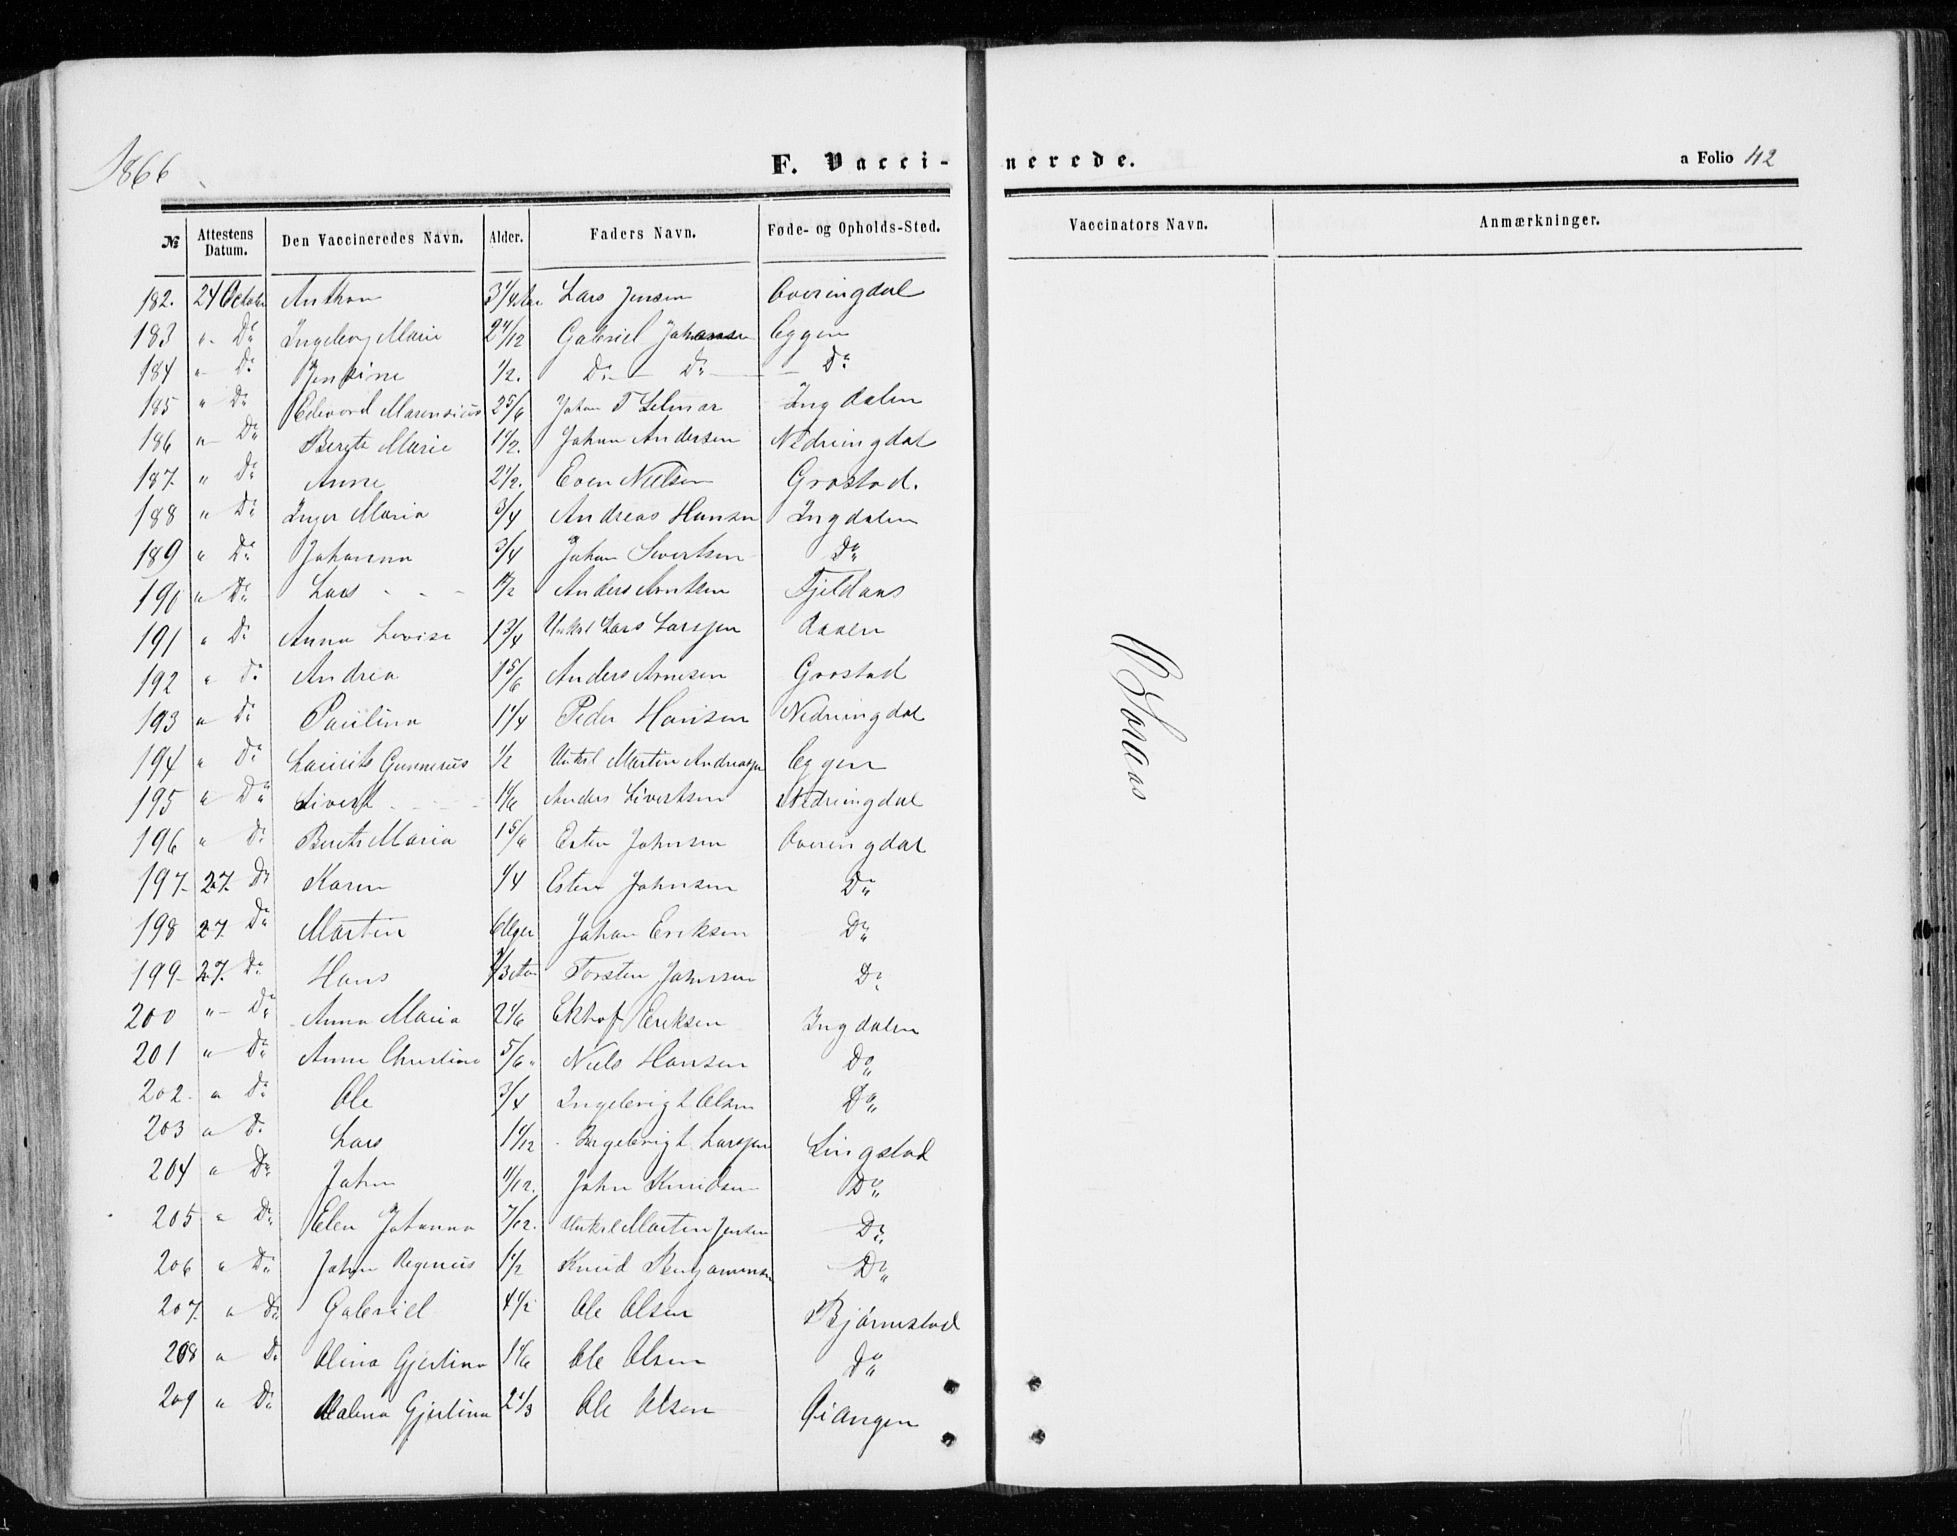 1866
F. Vaccinerede.
a Folio 42
№ | Attestens Datum. | Den Vaccineredes Navn. | Alder. | Faders Navn. | Føde- og Opholds-Sted. | Vaccinators Navn. | Anmærkninger.
182. 24 October Anthon 3 1/4 Aar Lars Jensen Overingdal
183 " Do Ingeborg Marie 2 1/12 Gabriel Johansen Eggen
184 " Do Jensine 1/2. Do Do Do
185 " Do Edevard Marensius 2 5/6 Johan T Selmer Ingdalen
186 " Do Beryte Marie 1 1/2. Johan Andersen Nedreingdal
187. " Do Anne 2 1/2. Even Nielsen Grostad.
188 " Do Inger Maria 3/4 Andreas Hansen Ingdalen
189 " Do Johanna 3/4 Johan Sivertsen Do
190 " Do Lars 1/2 Anders Arntsen Fjeldaas
191 " Do Anna Lovise 1 3/4 Unkel Lars Larssen Aasen
192 " Do Andrea 1 5/6 Anders Arnesen Grostad
193 " Do Paulina 1 1/4 Peder Hansen Nedreingdal
194 " Do Laurits Gunnerus 1/2 Unkel Martin Andreassen Eggen
195 " Do Sivert 1 1/6 Anders Sivertsen Nedreingdal
196 " Do Berets Maria 1 5/6 Esten Johnsen Overingdal
197. 27. Do Karen 1/4 Esten Johnsen Do
198 27. Do Martin 6 Uger Johan Eriksen Do
199. 27. Do Hans 1/3 Aar Torsten Johnsen Do
200 " Do Anna Maria 2 1/6 Eriksen Ingdalen
201 " Do Anne Christina 5/6 Niels Hansen Do
202. " Do Ole 3/4 Ingebrigt Olsen Do
203 " Do Lars 1 1/12 Ingebrigt Larssen Lingstad
204 " Do John 11/12. John Knudsen Do
205 " Do Elen Johanna 7/12. Unkel Martin Jensen Do
206 " Do Johan Regenius 1 1/2 Knud Benjaminsen Do
207. " Do Gabriel 4 1/2 Ole Olsen Bjørnstad
208 " Do Olina Gjertina 1 1/6 Ole Olsen Do
209 " Do Gjertina 2 1/3 Ole Olsen Øiangen